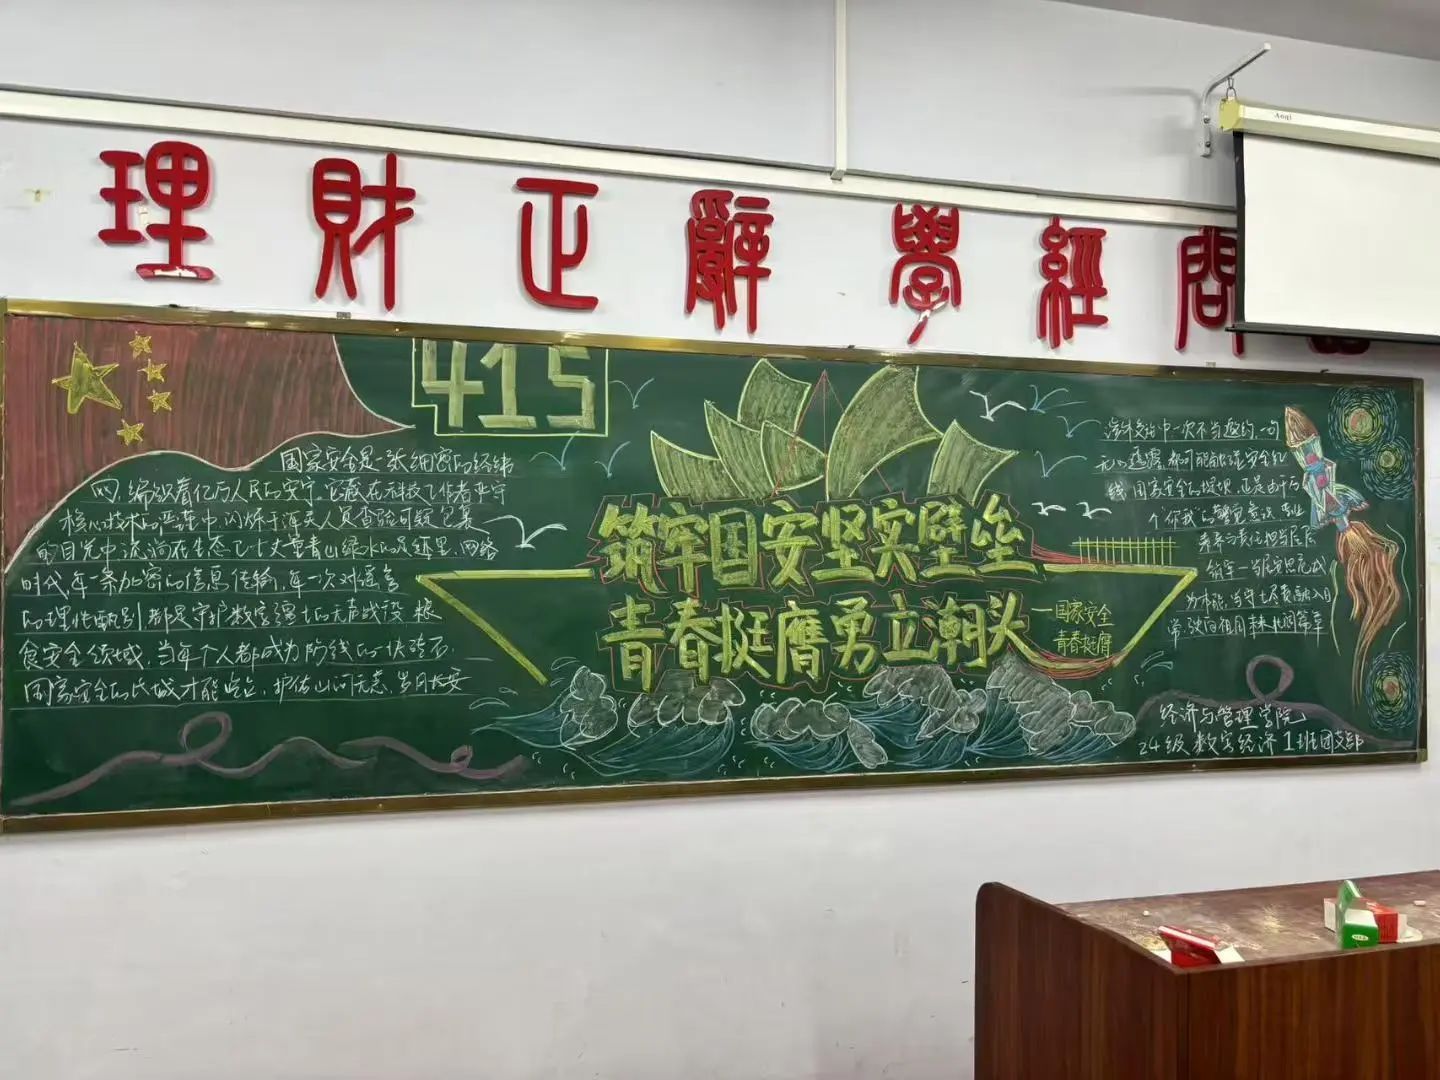 理财正辞學經
Aoqi
415
国家安全是一张细密的经纬
网,编织着亿万人民的安宁。它藏在科技工作者坚守
核心技术的严谨中,闪烁于海关人员查验可疑包裹
的目光中,流淌在生态卫士丈量青山绿水的足迹里。网络
时代,每一条加密的信息传输,每一次对谣言
的理性甄别都是守护数字疆土的无声战役,粮
食安全领域,当每个人都成为防线的一块砖石,
国家安全的长城才能坚,护佑山河无恙,岁月长安
筑牢国安坚实壁垒
青春挺膺勇立潮头
—国家安全
青春挺膺
涉外交往中一次不当邀约,一句
无心透露,都可能触碰安全红
线,国家安全的堤坝,正是由千万
个"你我"的警觉意识,专业
素养与责任担当层层
筑牢—当居安思危成
为本能,当守土尽责融入日
常,驶向祖国未来
经济与管理学院
24级数字经济1班团支部